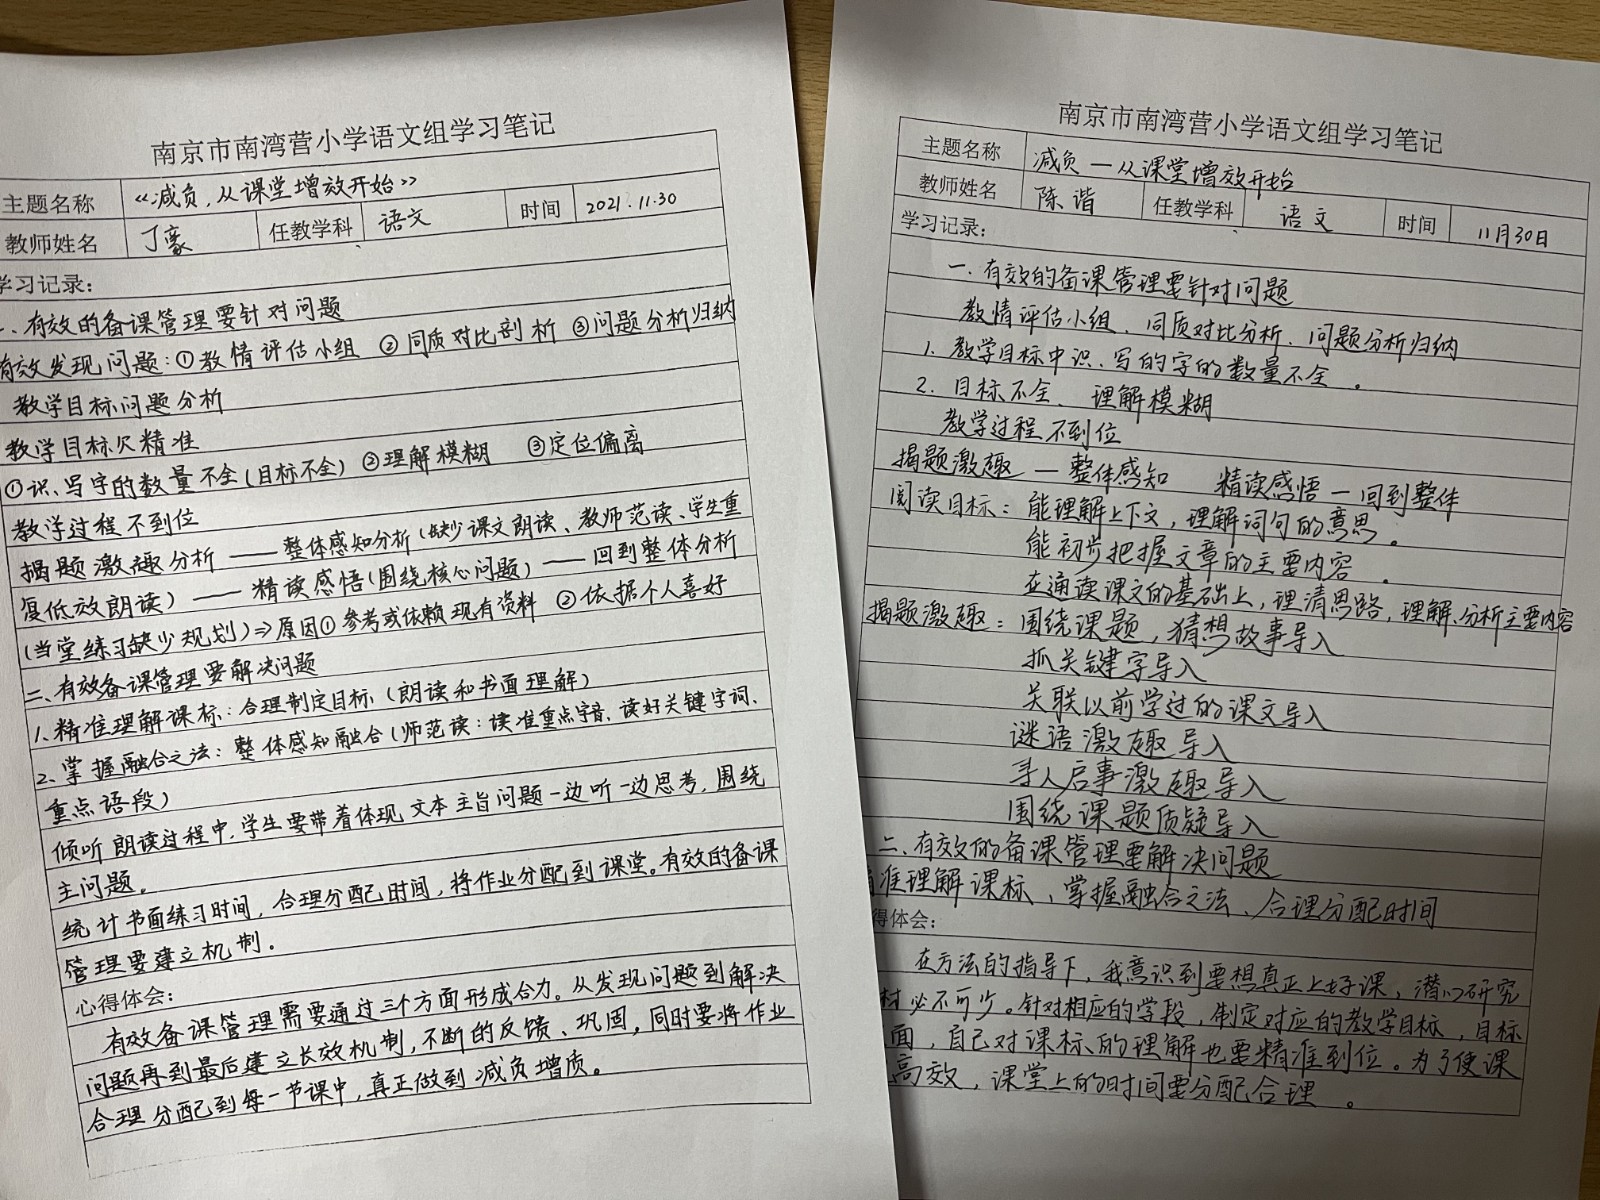 南京市南湾营小学语文组学习笔记
主题名称 《减负,从课堂增效开始》
教师姓名 丁豪 任教学科 语文 时间 2021.11.30
学习记录:
一、有效的备课管理要针对问题
有效发现问题:①教情评估小组 ②同质对比剖析 ③问题分析归纳
教学目标问题分析
教学目标欠精准
①识、写字的数量不全(目标不全) ②理解模糊 ③定位偏离
教学过程不到位
揭题激趣分析——整体感知分析(缺少课文朗读、教师范读、学生重
复低效朗读)——精读感悟(围绕核心问题)——回到整体分析
(当堂练习缺少规划)⇒原因①参考或依赖现有资料 ②依据个人喜好
二、有效备课管理要解决问题
1.精准理解课标:合理制定目标(朗读和书面理解)
2.掌握融合之法:整体感知融合(师范读:读准重点字音、读好关键字词、
重点语段)
倾听朗读过程中,学生要带着体现文本主旨问题一边听一边思考,围绕
主问题。
统计书面练习时间,合理分配时间,将作业分配到课堂。有效的备课
管理要建立机制。
心得体会:
有效备课管理需要通过三个方面形成合力。从发现问题到解决
问题再到最后建立长效机制,不断的反馈、巩固,同时要将作业
合理分配到每一节课中,真正做到减负增质。
南京市南湾营小学语文组学习笔记
主题名称 减负—从课堂增效开始
教师姓名 陈谐 任教学科 语文 时间 11月30日
学习记录:
一.有效的备课管理要针对问题
教情评估小组、同质对比分析、问题分析归纳
1.教学目标中识、写的字的数量不全。
2.目标不全、理解模糊
教学过程不到位
揭题激趣—整体感知 精读感悟—回到整体
阅读目标:能理解上下文,理解词句的意思。
能初步把握文章的主要内容。
在通读课文的基础上,理清思路,理解、分析主要内容
揭题激趣:围绕课题,猜想故事导入
抓关键字导入
关联以前学过的课文导入
谜语激趣导入
寻人启事激趣导入
围绕课题质疑导入
二、有效的备课管理要解决问题
准理解课标、掌握融合之法、合理分配时间
得体会:
在方法的指导下,我意识到要想真正上好课,潜心研究
材必不可少。针对相应的学段,制定对应的教学目标,目标
面,自己对课标的理解也要精准到位。为了使课
高效,课堂上的时间要分配合理。